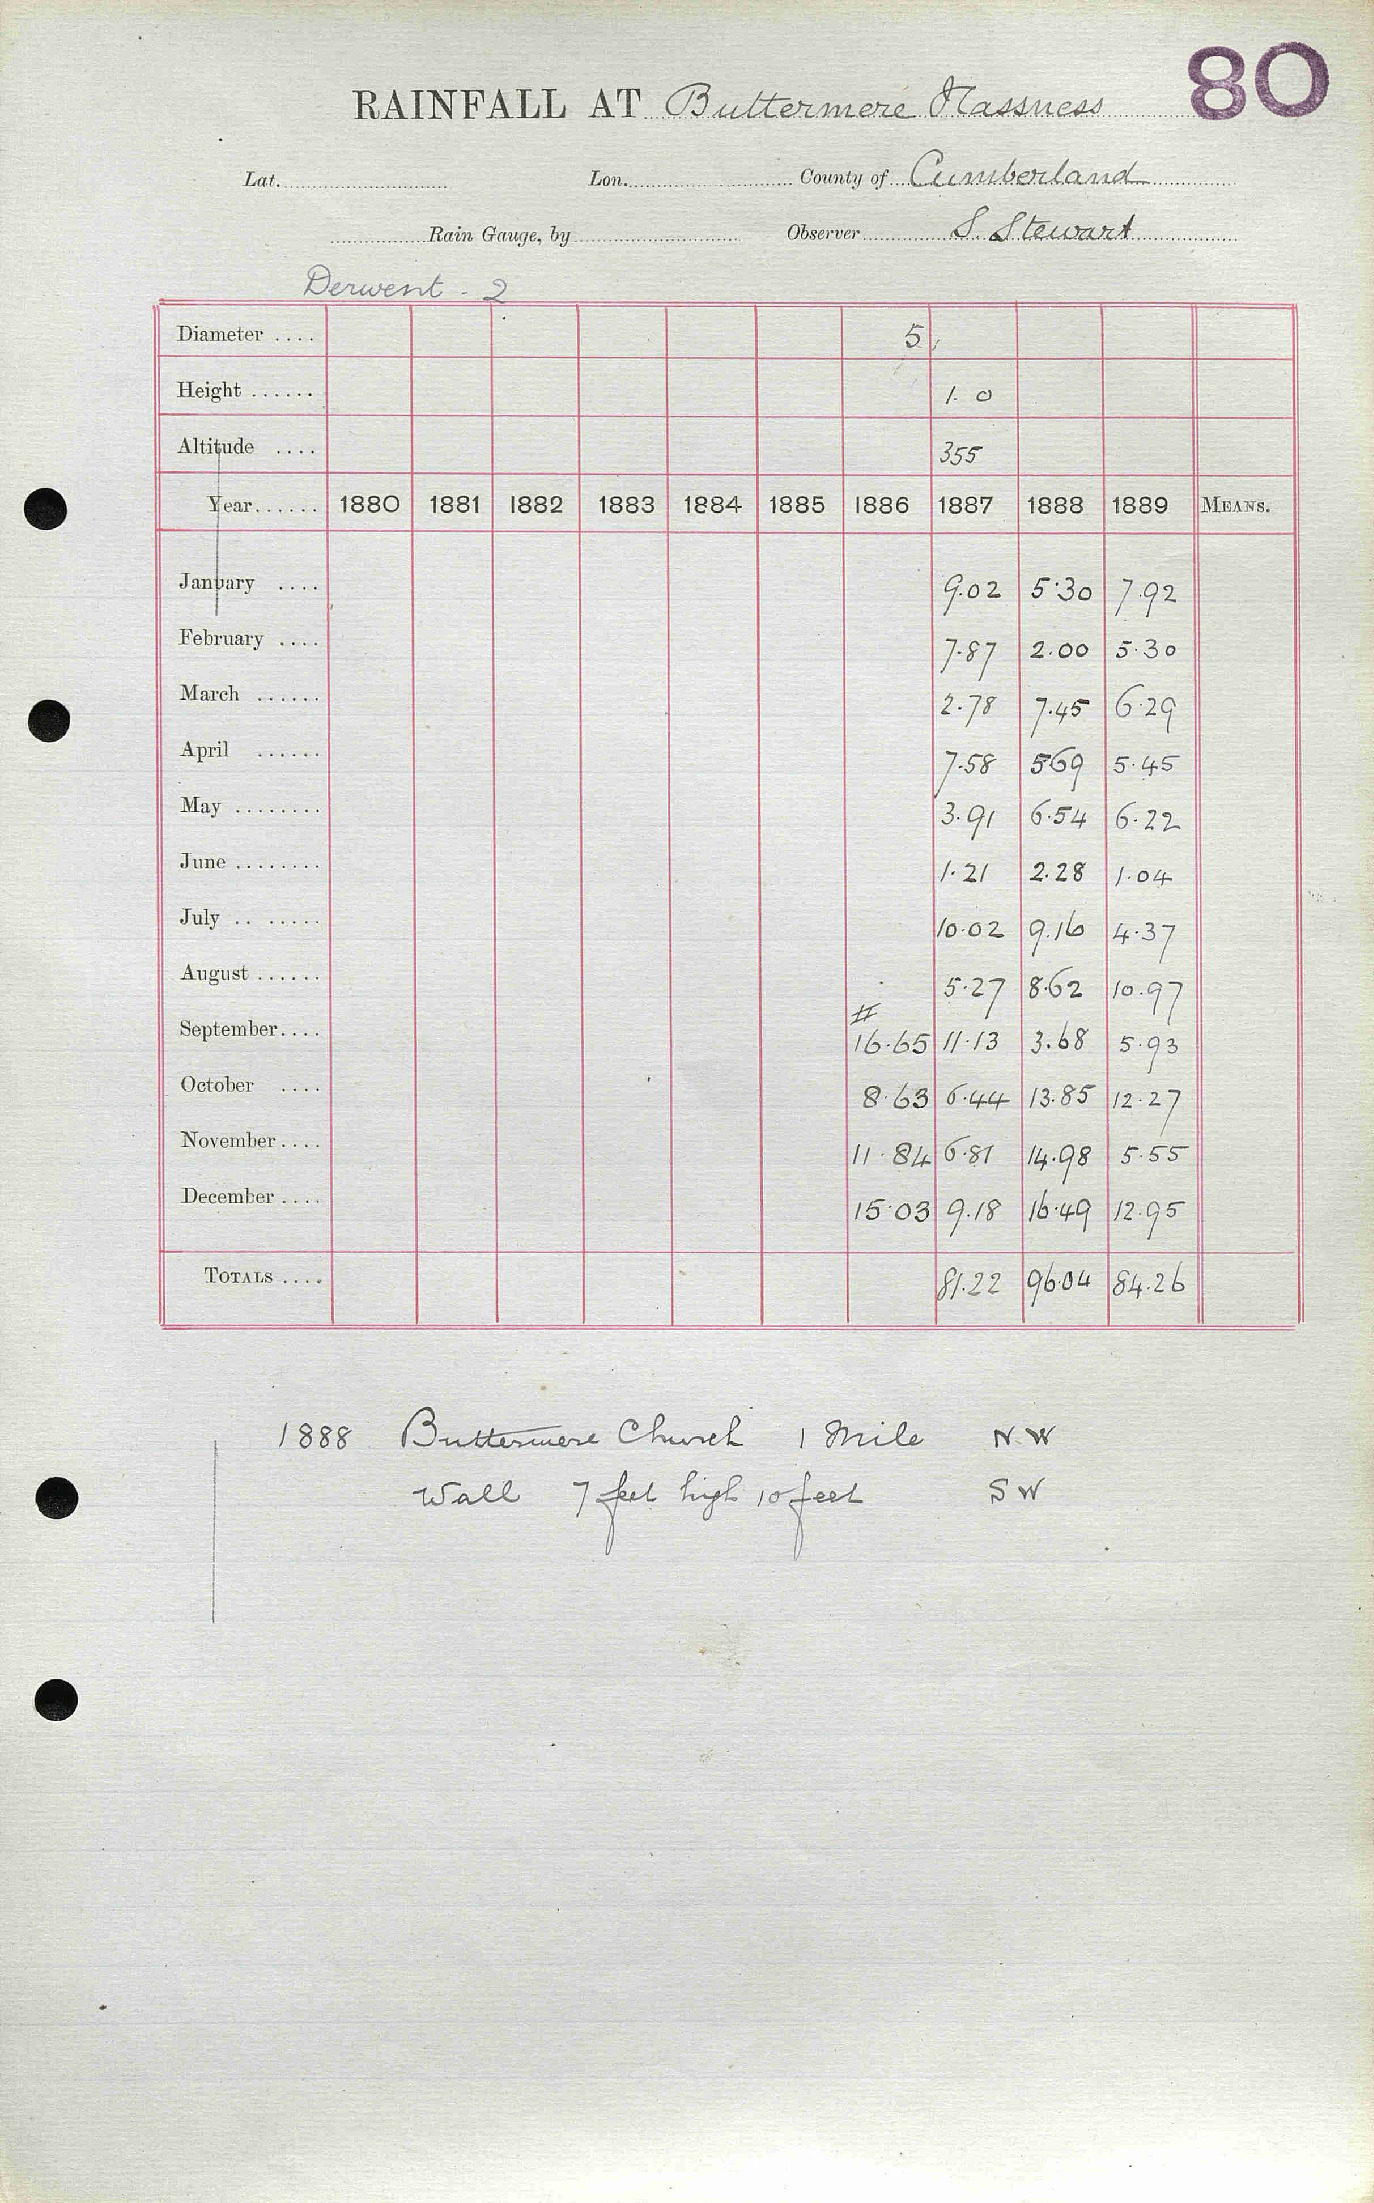 80
RAINFALL AT Buttermere Hassness
Lat. Lon. County of Cumberland
Rain Gauge, by Observer S. Stewart
Derwent - 2
Diameter .... 5
Height ...... 1. 0
Altitude .... 355
Year...... 1880 1881 1882 1883 1884 1885 1886 1887 1888 1889 MEANS.
January .... 9.02 5.30 7.92
February .... 7.87 2.00 5.30
March ...... 2.78 7.45 6.29
April ...... 7.58 569 5.45
May ........ 3.91 6.54 6.22
June ........ 1.21 2.28 1.04
July .. ..... 10.02 9.16 4.37
August ...... 5.27 8.62 10.97
#
September.... 16.65 11.13 3.68 5.93
October .... 8.63 6.44 13.85 12.27
November.... 11.84 6.81 14.98 5.55
December.... 15.03 9.18 16.49 12.95
TOTALS .... 81.22 96.04 84.26
1888 Buttermere Church 1 Mile NW
Wall 7 feet high 10 feet SW